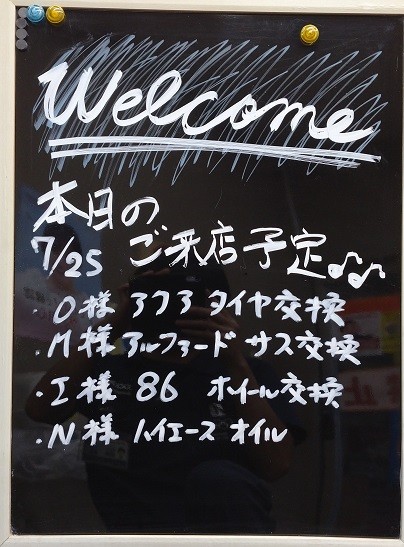 Welcome
本日の
7/25 ご来店予定♪♪
・O様 アクア タイヤ交換
・M様 アルファード サス交換
・I様 86 ホイール交換
・N様 ハイエース オイル